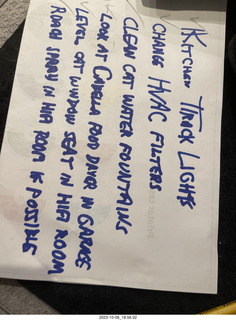 Kitchen Track Lights
Change HVAC Filters
Clean Cat Water Fountains
Look at Cabella Food Dryer in Garage
Level Cat Window Seat in HiFi Room
Roach Spray in HiFi Room if Possible
2023-10-08_16:56:02